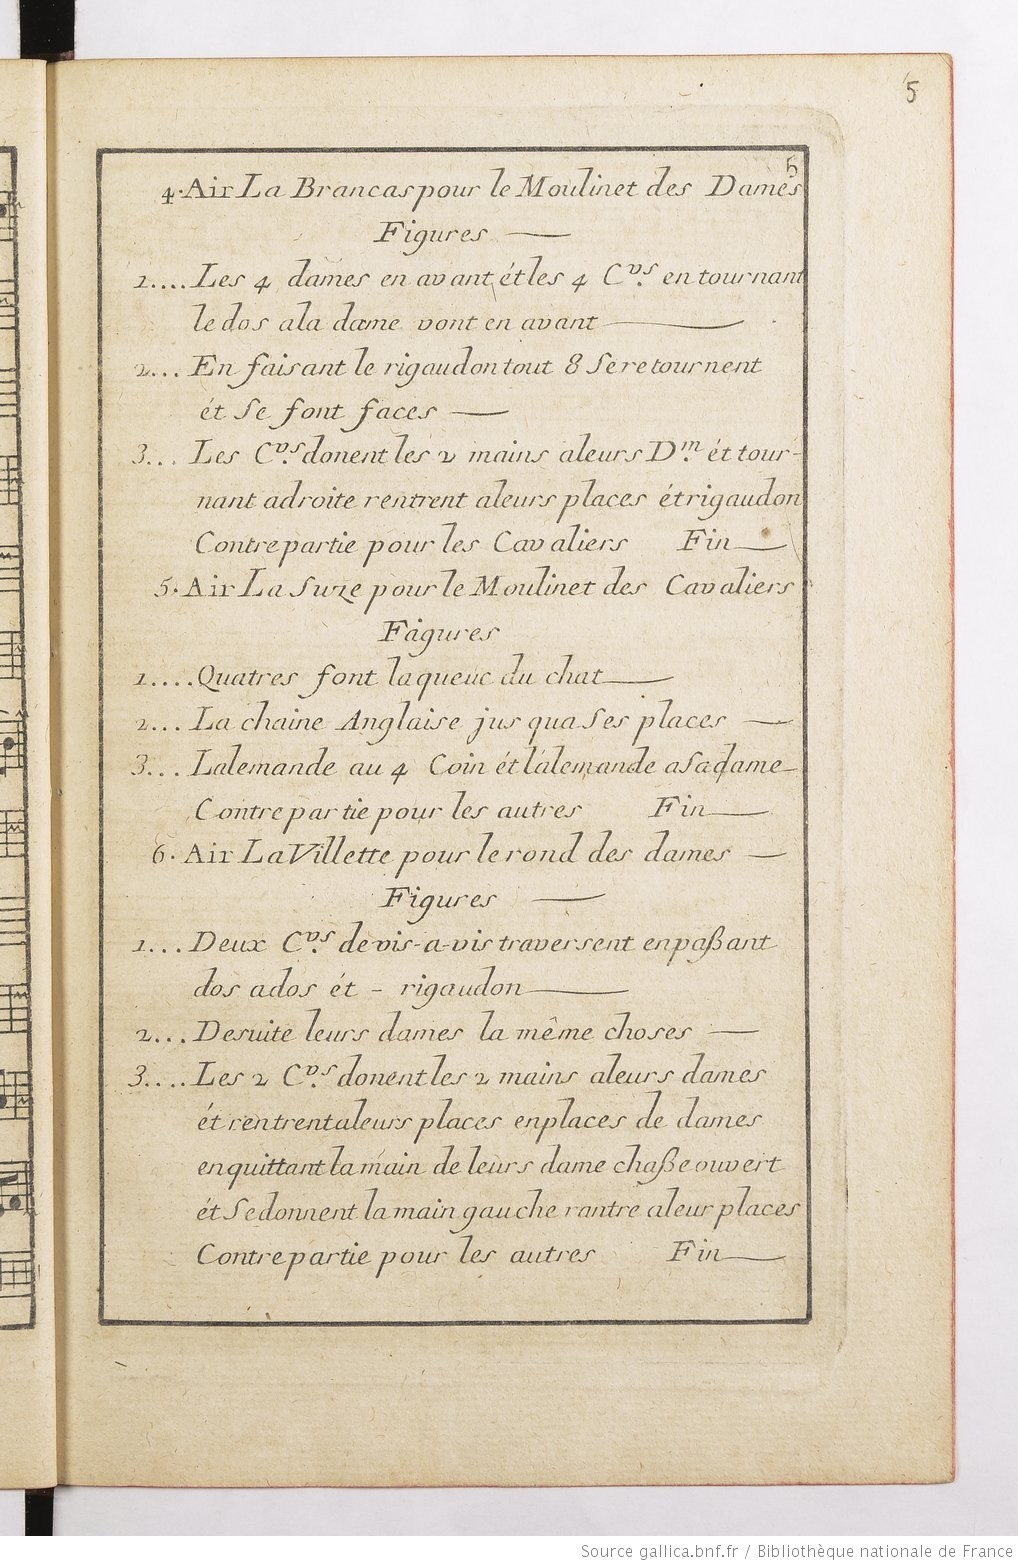 5
5
4. Air La Brancas pour le Moulinet des Dames
Figures
1.... Les 4 dames en avant ét les 4 C.vs en tournant
le dos a la dame vont en avant
2... En faisant le rigaudon tout 8 se retournent
ét se font faces
3... Les C.vs donent les 2 mains a leurs D.m ét tour-
nant a droite rentrent a leurs places ét rigaudon
Contrepartie pour les Cavaliers Fin
5. Air La Suze pour le Moulinet des Cavaliers
Figures
1.... Quatres font la queue du chat
2... La chaine Anglaise jus qua ses places
3... Lalemande au 4 Coin ét lalemande a sa dame
Contrepartie pour les autres Fin
6. Air La Villette pour le rond des dames
Figures
1... Deux C.vs de vis-a-vis traversent en paßant
dos a dos ét - rigaudon
2... Desuite leurs dames la même choses
3.... Les 2 C.vs donent les 2 mains a leurs dames
ét rentrent a leurs places en places de dames
en quittant la main de leurs dame chaße ouvert
ét se donnent la main gauche rantre a leur places
Contrepartie pour les autres Fin
Source gallica.bnf.fr / Bibliothèque nationale de France